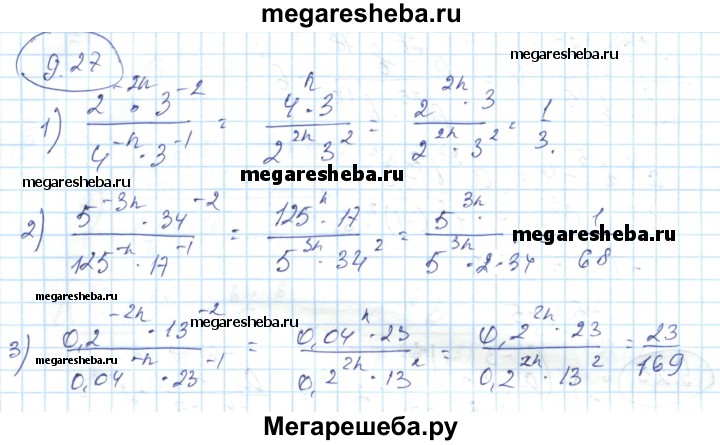 megaresheba.ru
9.27
megaresheba.ru
1) (2^(-2n) · 3^(-2)) / (4^(-n) · 3^(-1)) = (4^n · 3) / (2^(2n) 3^2) = (2^(2n) · 3) / (2^(2n) · 3^2) = 1/3.
megaresheba.ru
megaresheba.ru
2) (5^(-3n) · 34^(-2)) / (125^(-n) · 17^(-1)) = (125^n · 17) / (5^(3n) · 34^2) = (5^(3n) ·) / (5^(3n) · 2 · 34) 1/68
megaresheba.ru
megaresheba.ru
megaresheba.ru
3) (0,2^(-2n) · 13^(-2)) / (0,04^(-n) · 23^(-1)) = (0,04^n · 23) / (0,2^(2n) · 13^2) = (0,2^(2n) · 23) / (0,2^(2n) · 13^2) = 23/169
megaresheba.ru
megaresheba.ru
Мегарешеба.ру